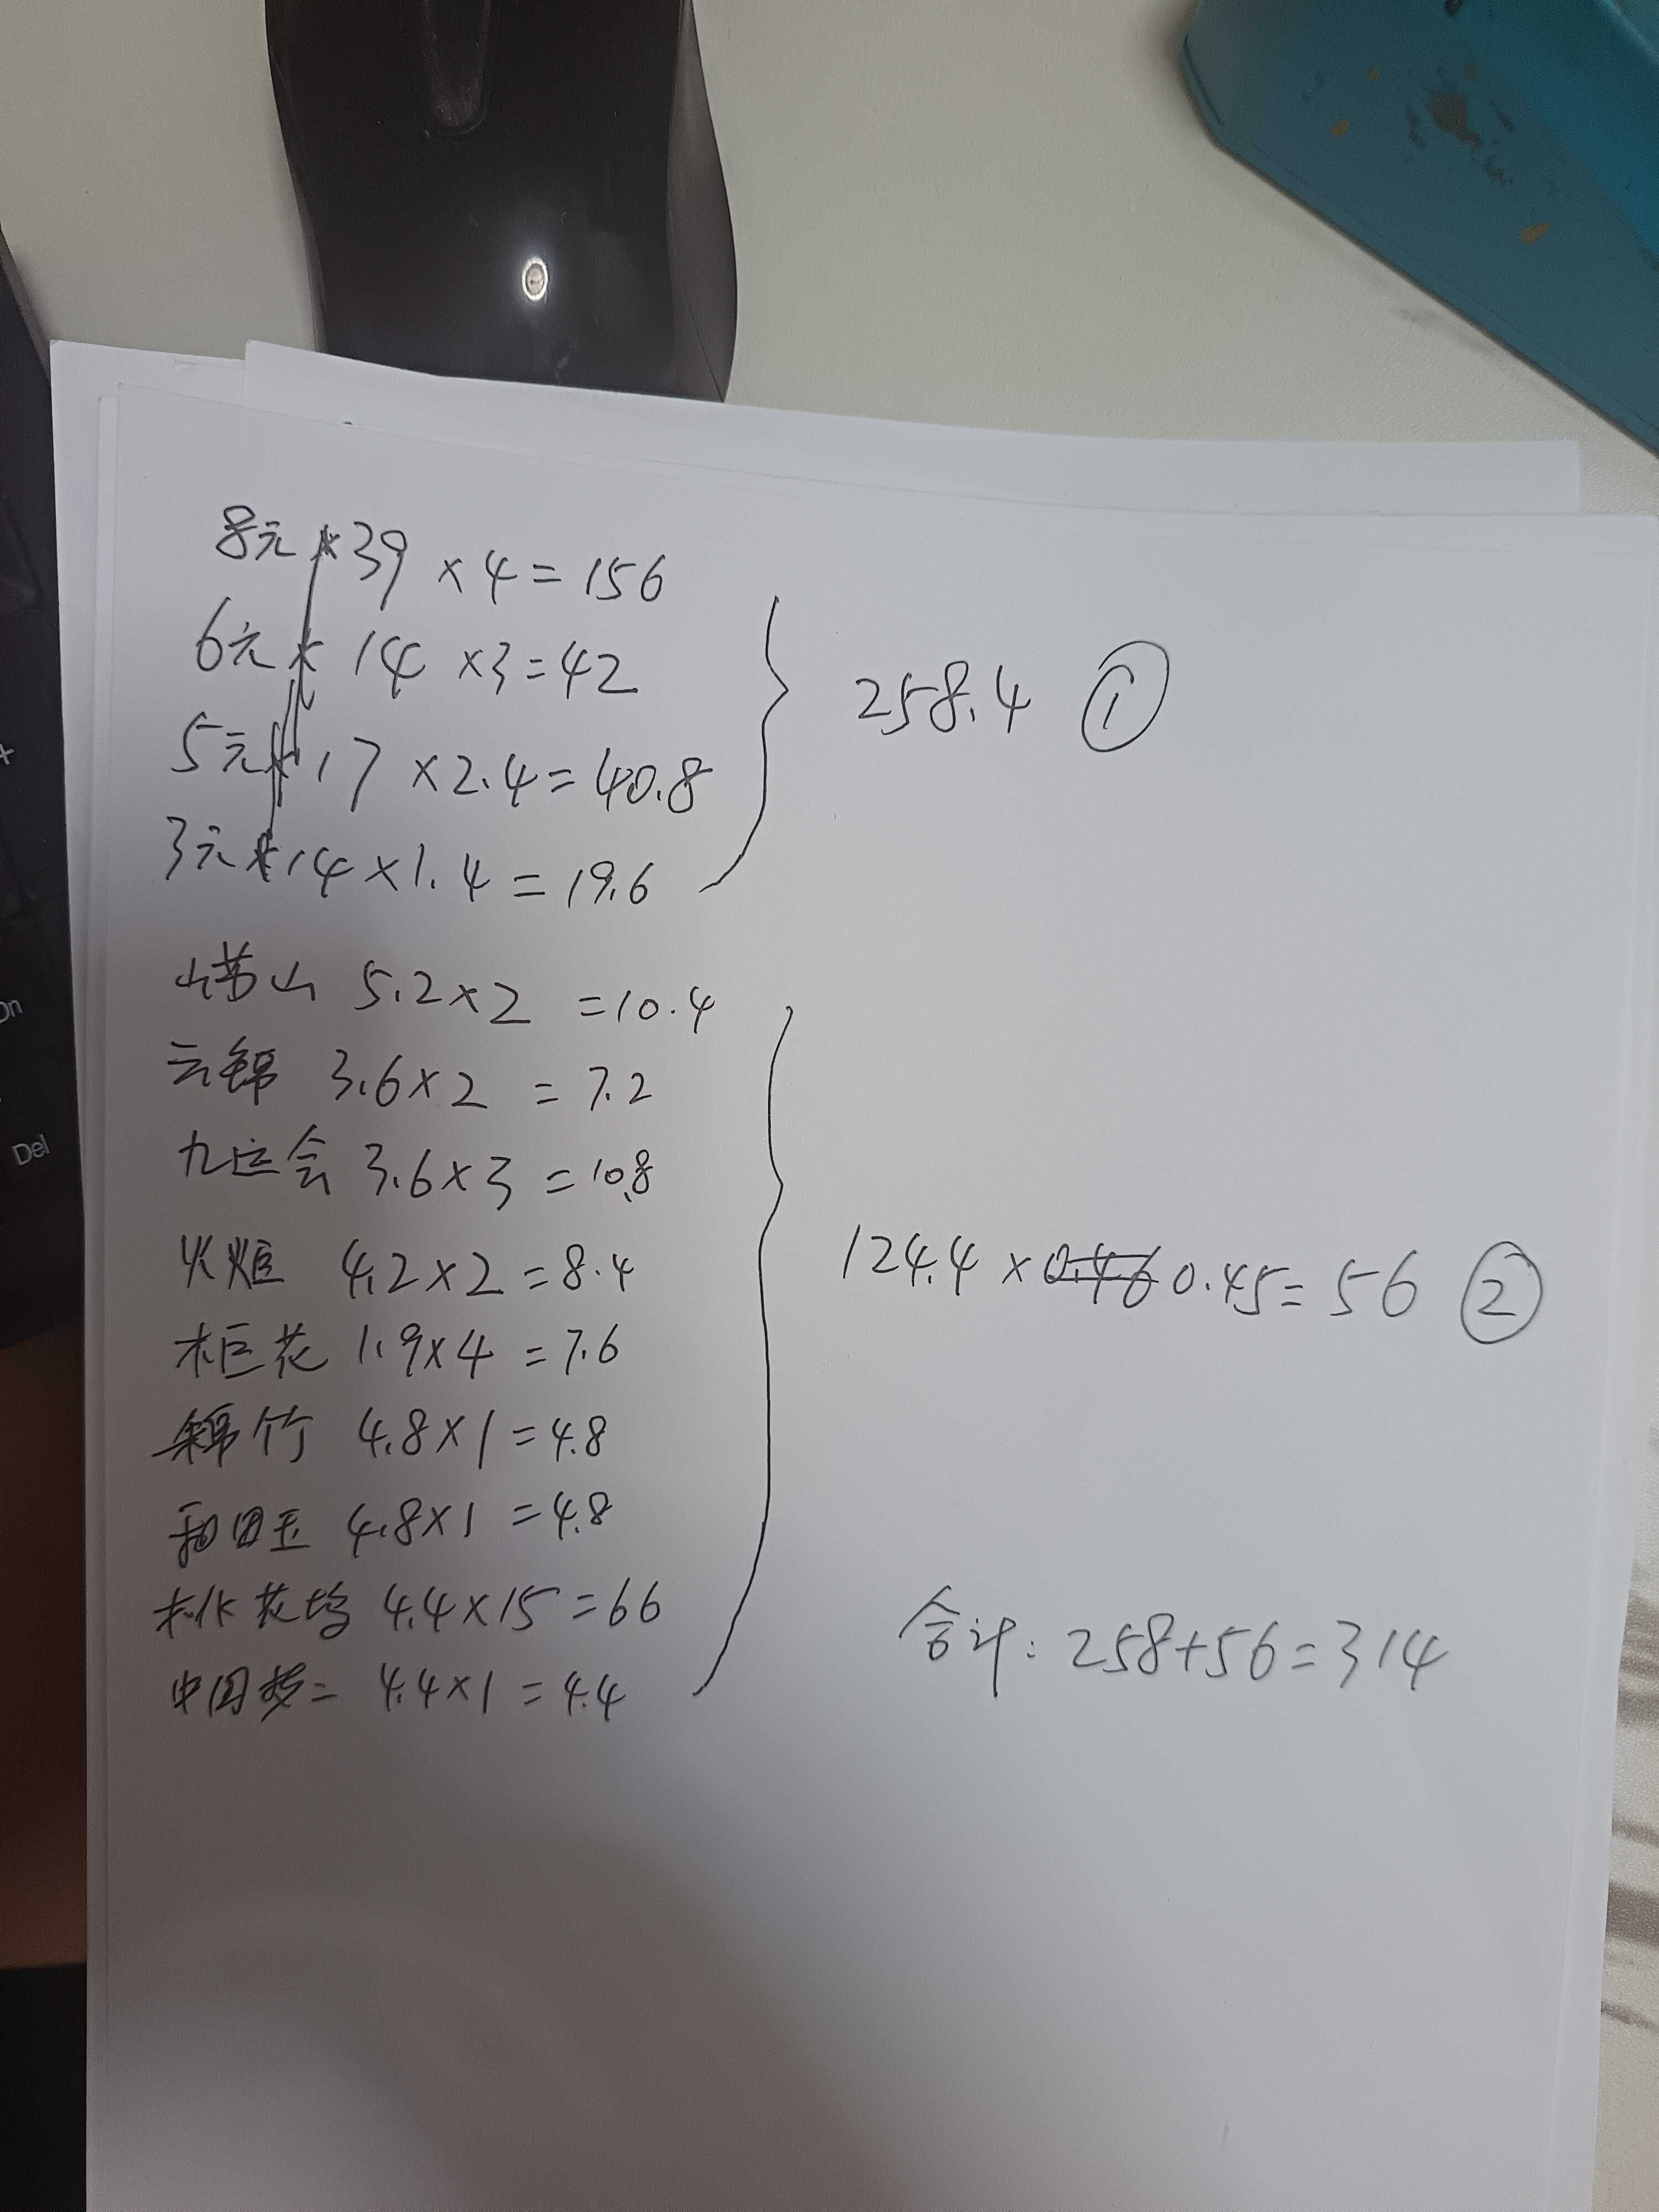 8元 39 × 4 = 156
6元 14 × 3 = 42
5元 17 × 2.4 = 40.8
3元 14 × 1.4 = 19.6
258.4 ①
5.2 × 2 = 10.4
云锦 3.6 × 2 = 7.2
九运会 3.6 × 3 = 10.8
火炬 4.2 × 2 = 8.4
桂花 1.9 × 4 = 7.6
绵竹 4.8 × 1 = 4.8
和田玉 4.8 × 1 = 4.8
桃花坞 4.4 × 15 = 66
中国梦二 4.4 × 1 = 4.4
124.4 × 0.46 0.45 = 56 ②
合计: 258 + 56 = 314
On
Del